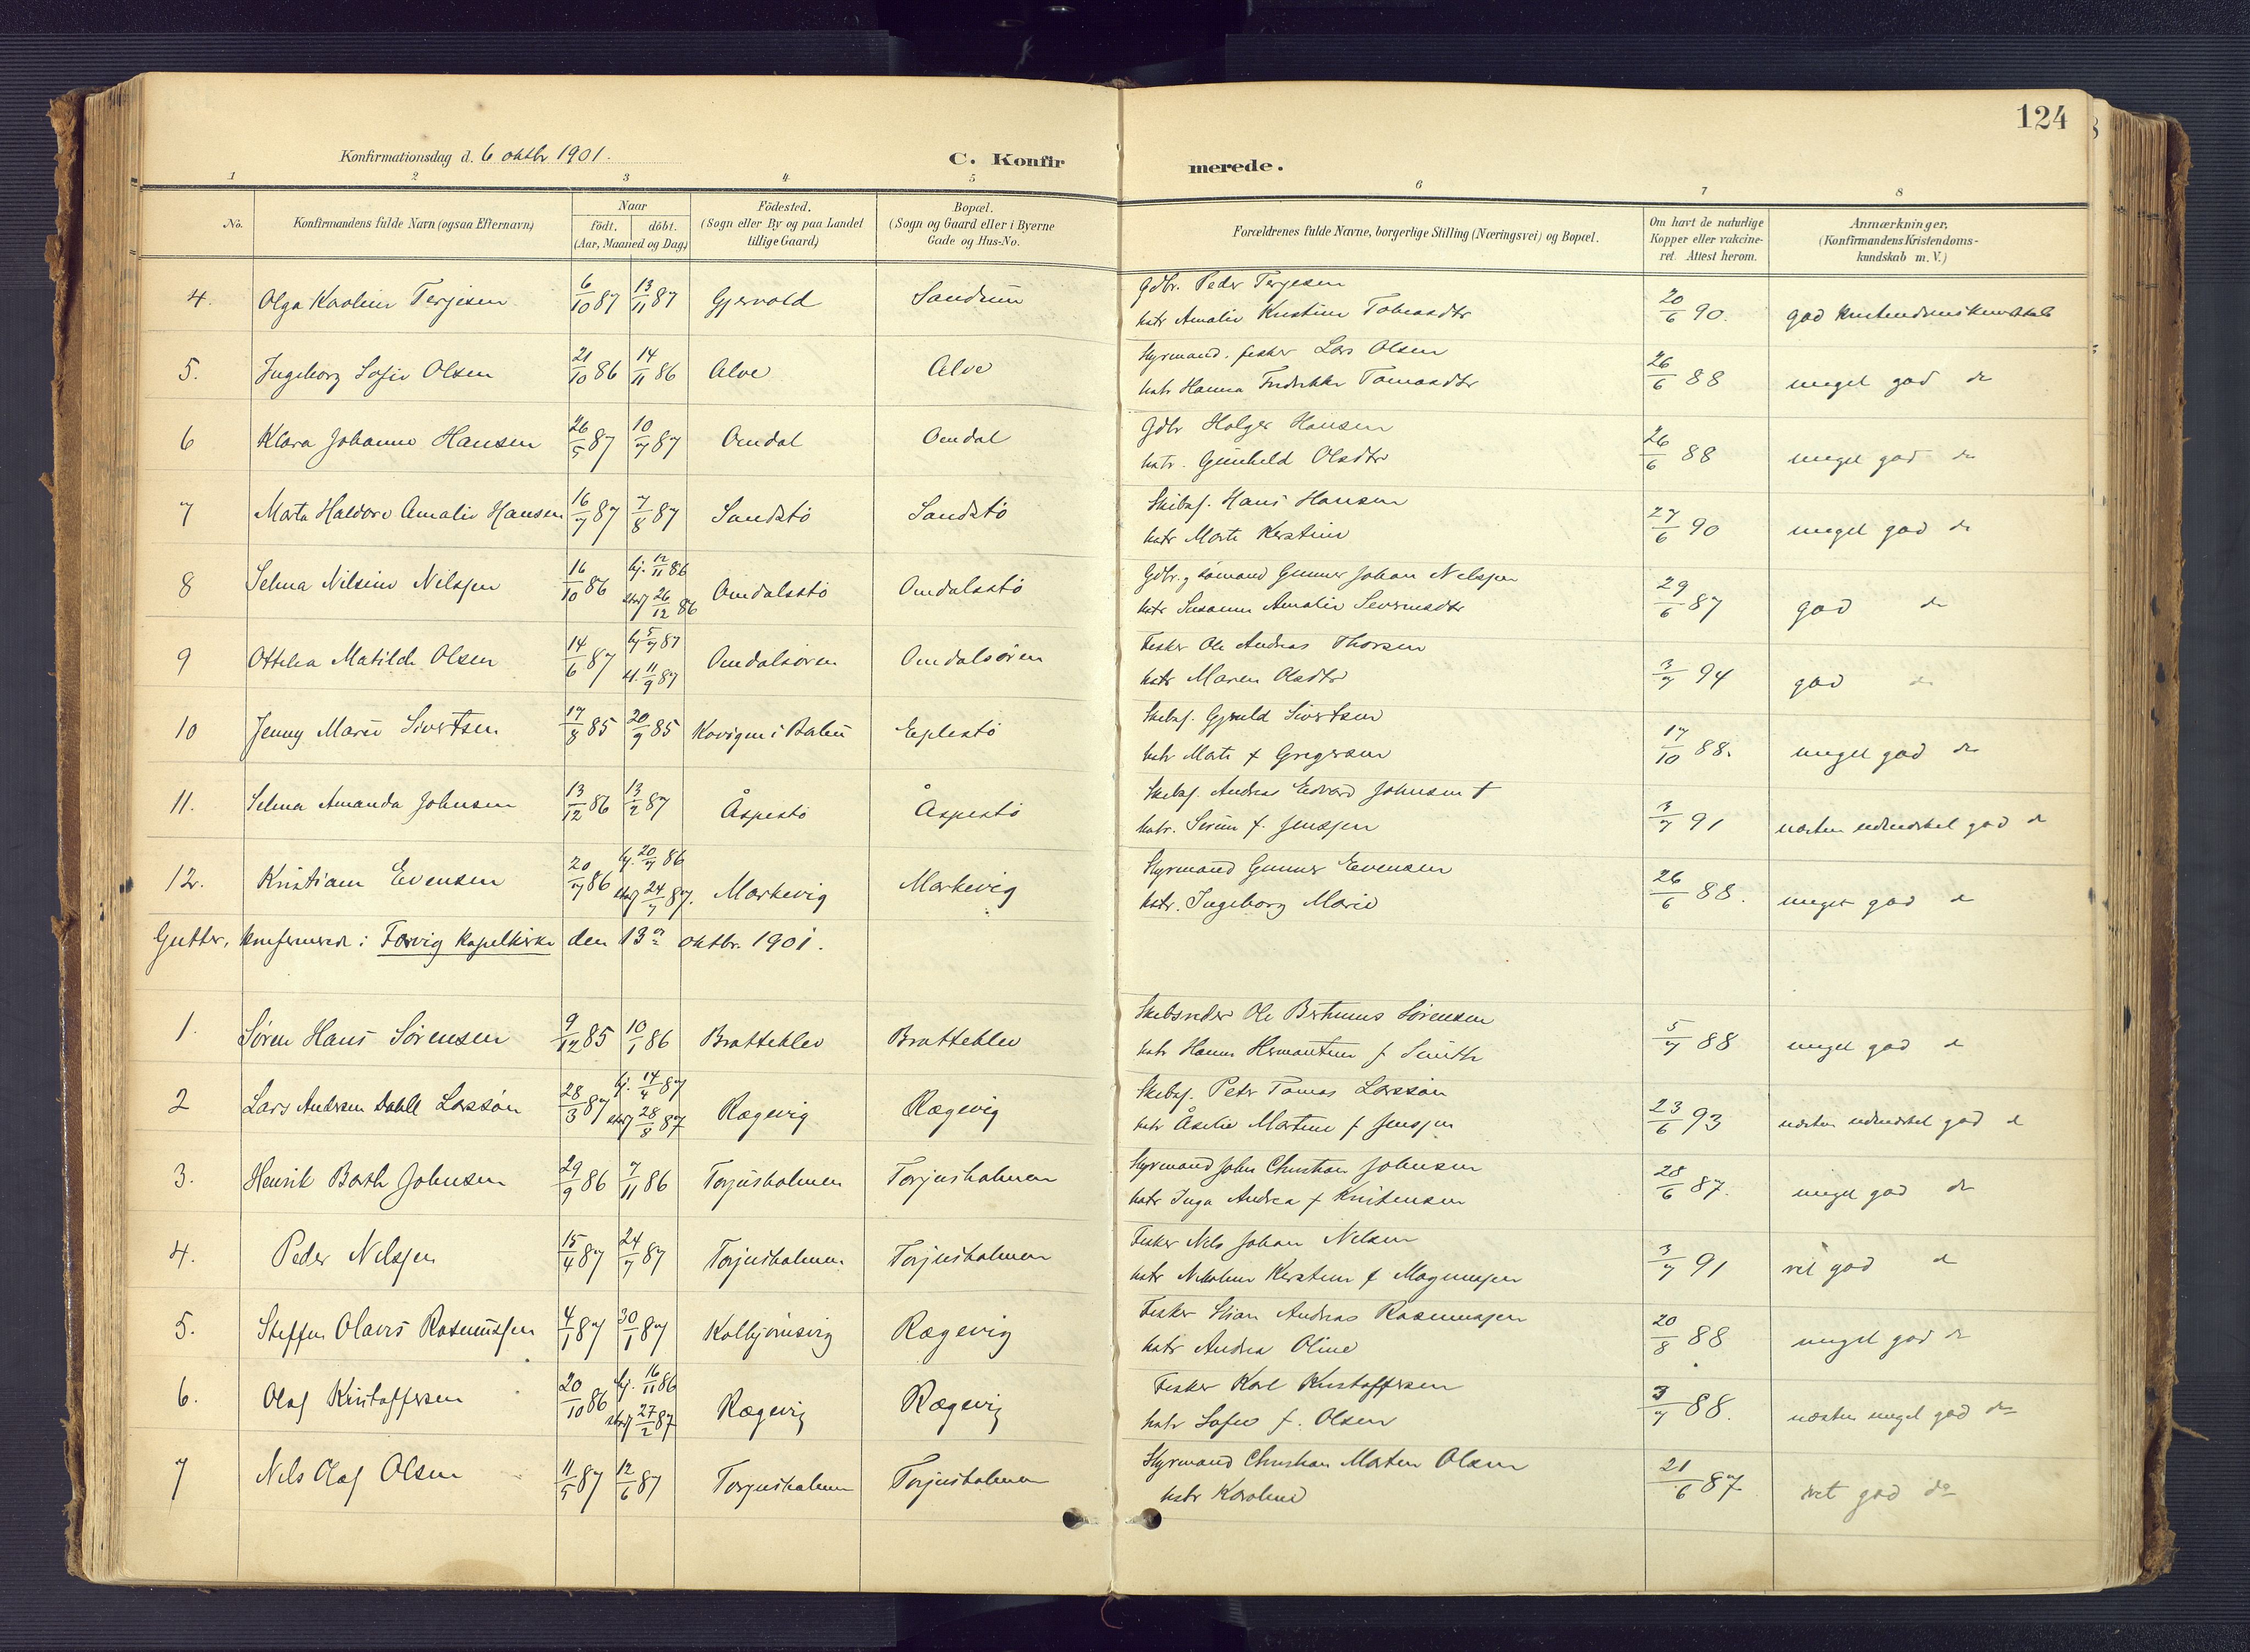 124
Konfirmationsdag d. 6 oktbr 1901.
C. Konfirmerede.
1 2 3 4 5 6 7 8
No.
Konfirmandens fulde Navn (ogsaa Efternavn)
Naar
födt. döbt.
(Aar, Maaned og Dag)
Födested.
(Sogn eller By og paa Landet
tillige Gaard)
Bopæl.
(Sogn og Gaard eller i Byerne
Gade og Hus-No.
Forældrenes fulde Navne, borgerlige Stilling (Næringsvei) og Bopæl.
Om havt de naturlige
Kopper eller vakcine-
ret. Attest herom.
Anmærkninger.
(Konfirmandens Kristendoms-
kundskab m. V.)
4. Olga Karoline Terjesen 6/10 87 13/11 87 Gjervold Sandum
Gdbr. Peder Terjesen
hstr Amalie Kristine Tobiasdtr
20/6 90. god Kristendomskundskab
5. Ingeborg Sofie Olsen 21/10 86 14/11 86 Alve Alve
Styrmand. fisker Lars Olsen
hstr Hanna Fredrikke Tomasdtr
26/6 88 meget god do
6 Klara Johanne Hansen 26/5 87 10/7 87 Omdal Omdal
Gdbr Holger Hansen
hstr. Gunhild Olsdtr
26/6 88 meget god do
7 Marta Haldore Amalie Hansen 16/7 87 7/8 87 Sandstö Sandstö
Skibsf. Hans Hansen
hstr Marte Kerstine
27/6 90 meget god do
8 Selma Nilsine Nilssen 16/10 86 hj. 12/11 86 stadf 26/12 86 Omdalsstö Omdalsstö
Gdbr. og sömand Gunner Johan Nilssen
hstr Susanne Amalie Severinsdtr
29/6 87 god do
9 Ottilia Matilde Olsen 14/6 87 hj 5/7 87 st. 11/9 87 Omdalsören Omdalsören
Fisker Ole Andreas Thorsen
hstr Maren Olsdtr
3/7 94 god do
10 Jenny Marie Sivertsen 17/8 85 20/9 85 Eplestö
Skibsf. Gjeruld Sivertsen
hstr Marte f Gregersen
17/10 88. meget god do
11. Selma Amanda Johnsen 13/12 86 13/2 87 Åspestö Åspestö
Skibsf. Andreas Edvard Johnsen †
hstr. Serine f. Jenssen
3/7 91 næsten udmærket god do
12. Kristiane Evensen 20/7 86 hj. 20/7 86 stadf 24/7 87. Markevig Markevig
Styrmand Gunner Evensen
hstr. Ingeborg Marie
26/6 88. meget god do
Gutter, konfirmerede i Færvig kapelkirke den 13de oktbr. 1901.
1. Sören Hans Sörensen 9/12 85 10/1 86 Bratteklev Bratteklev
Skibsreder Ole Bertinius Sörensen
hstr Hanne Hermantine f Smith
5/7 88 meget god do
2 Lars Andersen Dahll Larssön 28/3 87 hj. 14/4 87 stadf 28/8 87 Rægevig Rægevig
Skibsf. Peter Tomas Larssön
hstr Åselie Martine f Jenssen
23/6 93 næsten udmærket god do
3. Henrik Barth Johnsen 29/9 86 7/11 86 Torjusholmen Torjusholmen
Styrmand John Christian Johnsen
hstr Inga Andrea f Kristensen
28/6 87. meget god do
4. Peder Nilssen 15/4 87 24/7 87 Torjusholmen Torjusholmen
Fisker Nils Johan Nilsen
hstr Nikoline Kerstine f Magnussen
3/7 91 vel god do
5. Steffen Olaves Rasmussen 4/1 87 30/1 87 Kolbjörnsvig Rægevig
Fisker Stian Andreas Rasmussen
hstr Andrea Oline
20/8 88 meget god do
6. Olaf Kristoffersen 20/10 86 hj. 16/11 86 stadf 27/2 87 Rægevig Rægevig
Fisker Karl Kristoffersen
hstr Sofie f. Olsen
3/7 88. næsten meget god do
7 Nils Olaf Olsen 11/5 87 12/6 87 Torjusholmen Torjusholmen
Styrmand Christian Morten Olsen
hstr Karoline
21/6 87 vel god do